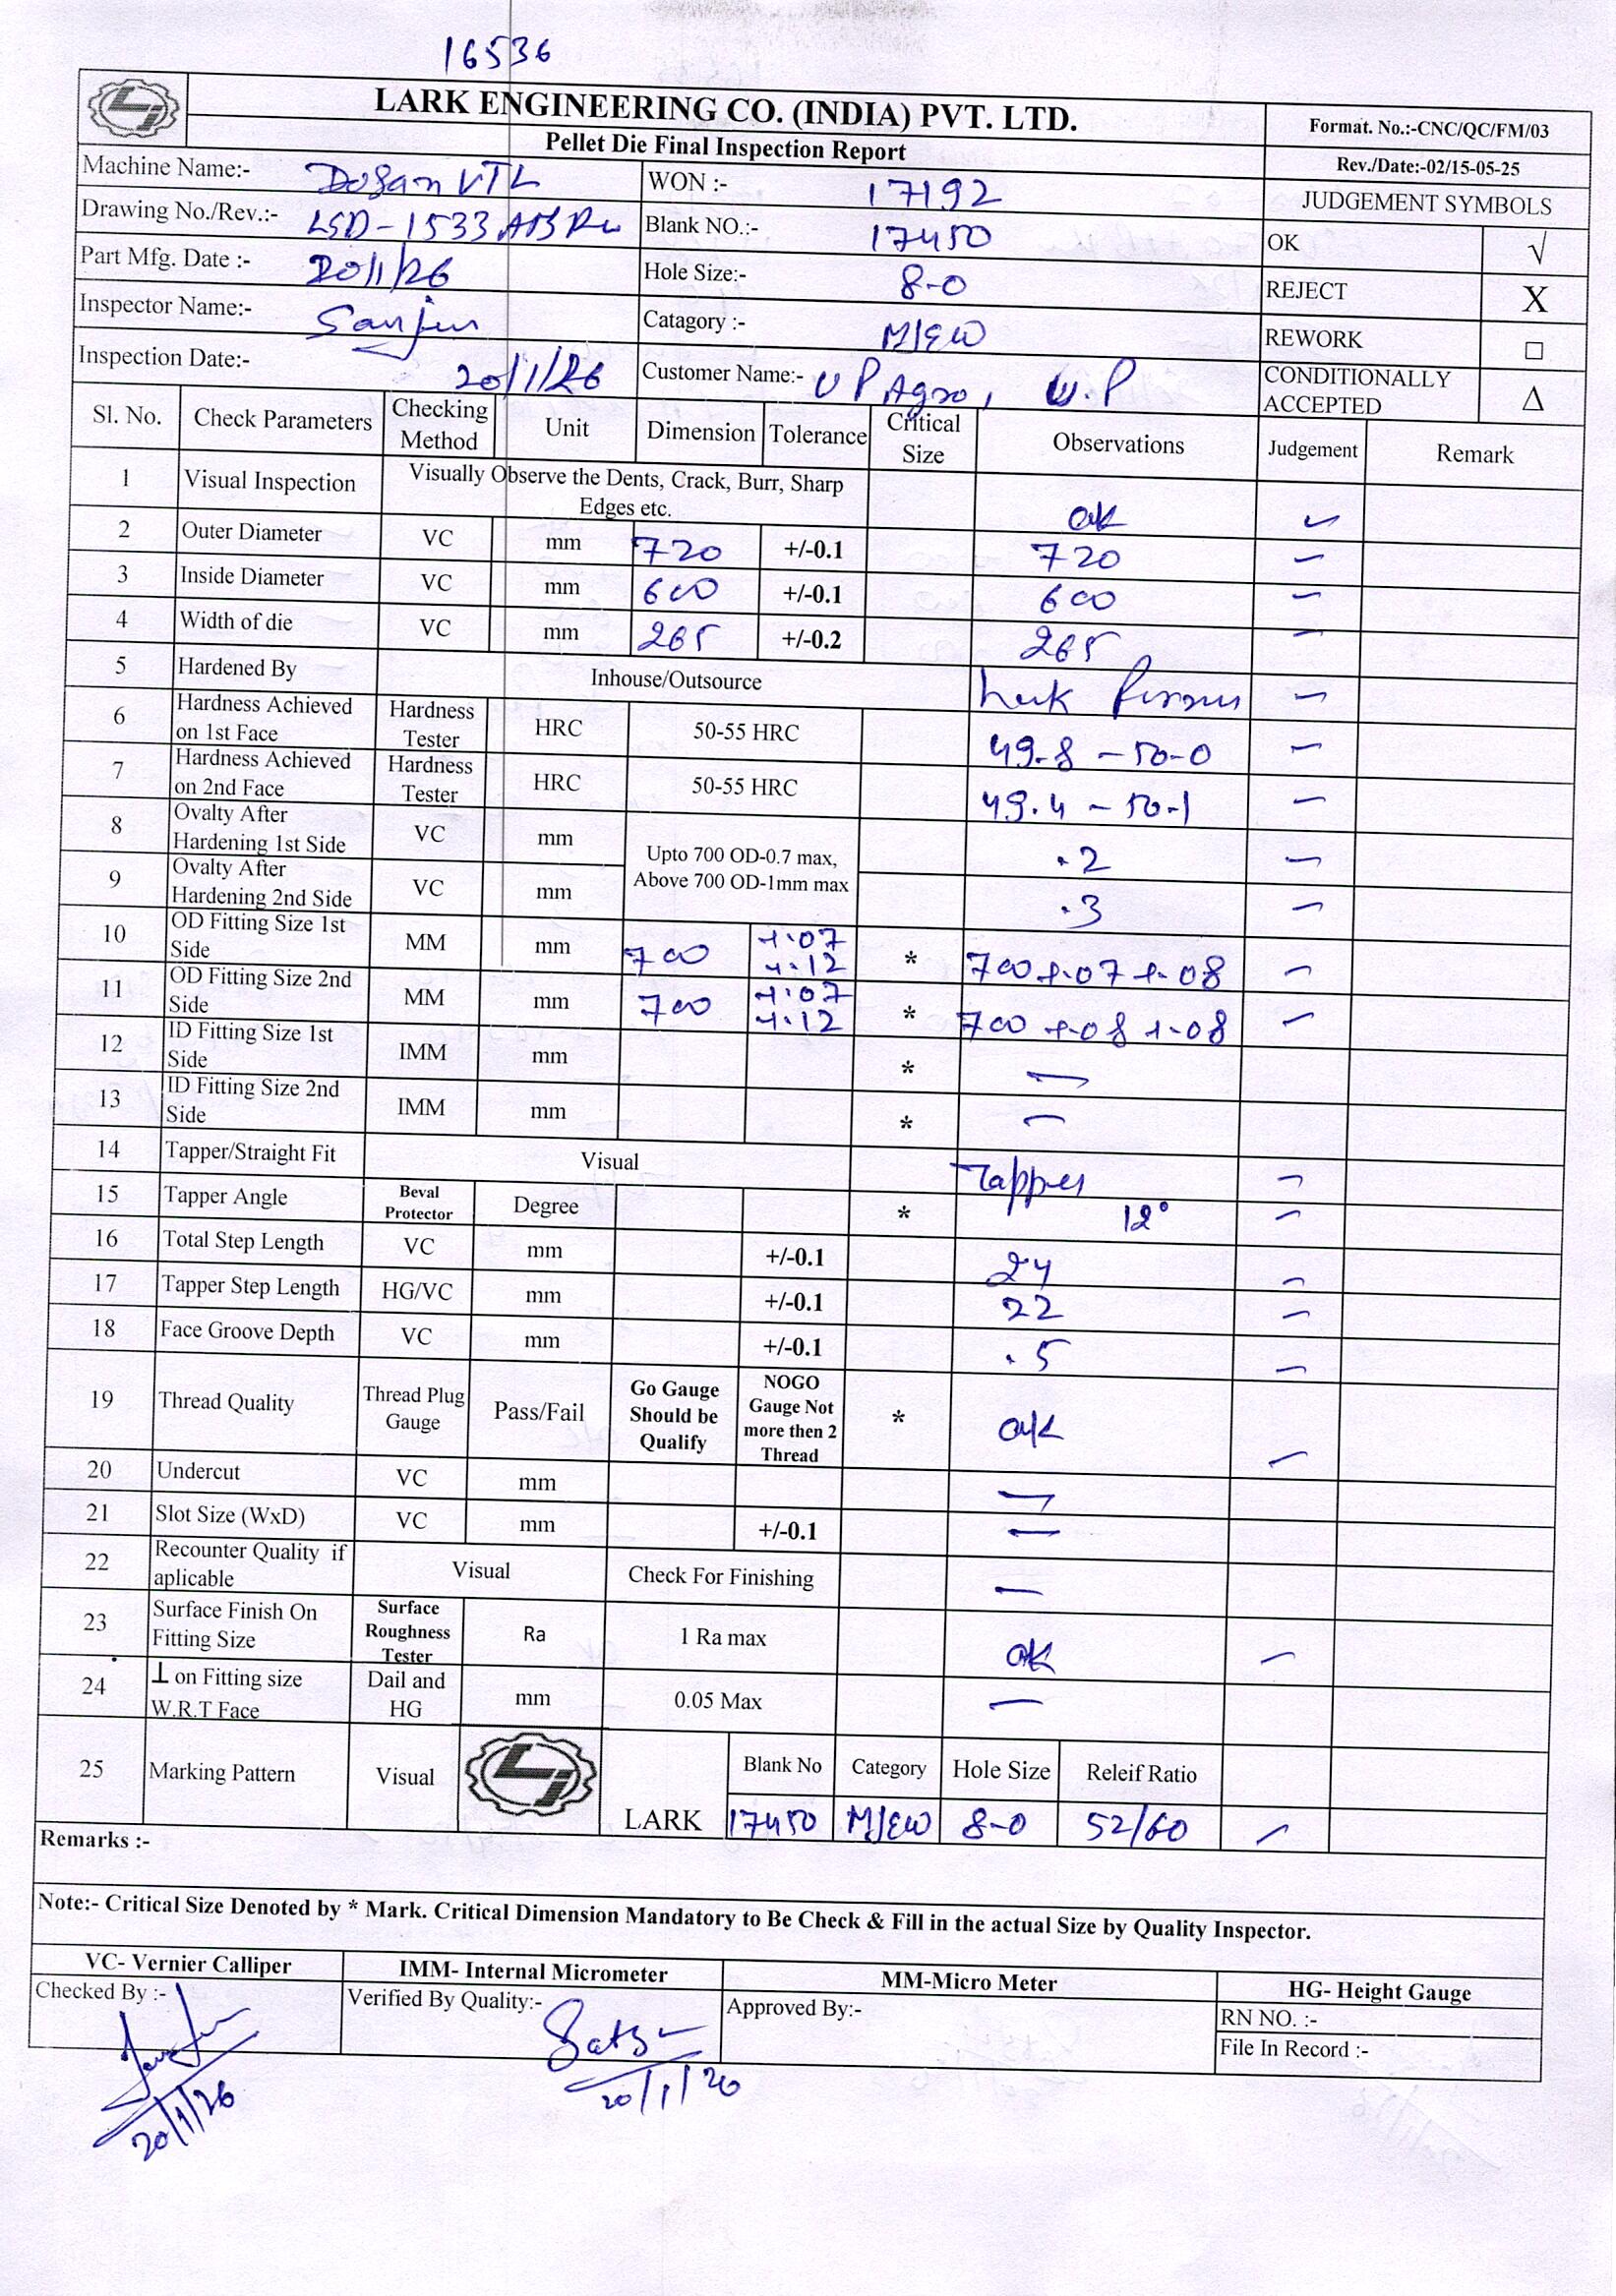 16536
LARK ENGINEERING CO. (INDIA) PVT. LTD.
Format. No.:-CNC/QC/FM/03
Pellet Die Final Inspection Report
Rev./Date:-02/15-05-25
Machine Name:- Dosan VTL WON :- 17192 JUDGEMENT SYMBOLS
Drawing No./Rev.:- LSD-1533 Blank NO.:- 17450 OK √
Part Mfg. Date :- 20/1/26 Hole Size:- 8-0 REJECT X
Inspector Name:- Catagory :- M/EW REWORK □
Inspection Date:- 20/1/26 Customer Name:- U P Agro, U.P CONDITIONALLY ACCEPTED Δ
Sl. No. Check Parameters Checking Method Unit Dimension Tolerance Critical Size Observations Judgement Remark
1 Visual Inspection Visually Observe the Dents, Crack, Burr, Sharp Edges etc. ok
2 Outer Diameter VC mm 720 +/-0.1 720
3 Inside Diameter VC mm 600 +/-0.1 600
4 Width of die VC mm 265 +/-0.2 265
5 Hardened By Inhouse/Outsource
6 Hardness Achieved on 1st Face Hardness Tester HRC 50-55 HRC 49.8 - 50-0
7 Hardness Achieved on 2nd Face Hardness Tester HRC 50-55 HRC 49.4 - 50-1
8 Ovalty After Hardening 1st Side VC mm Upto 700 OD-0.7 max, Above 700 OD-1mm max .2
9 Ovalty After Hardening 2nd Side VC mm .3
10 OD Fitting Size 1st Side MM mm 700 +.07 +.12 * 700 +.07 +.08
11 OD Fitting Size 2nd Side MM mm 700 +.07 +.12 * 700 +.08 +.08
12 ID Fitting Size 1st Side IMM mm * —
13 ID Fitting Size 2nd Side IMM mm * —
14 Tapper/Straight Fit Visual Tapper
15 Tapper Angle Beval Protector Degree * 12°
16 Total Step Length VC mm +/-0.1 24
17 Tapper Step Length HG/VC mm +/-0.1 22
18 Face Groove Depth VC mm +/-0.1 .5
19 Thread Quality Thread Plug Gauge Pass/Fail Go Gauge Should be Qualify NOGO Gauge Not more then 2 Thread * ok
20 Undercut VC mm —
21 Slot Size (WxD) VC mm +/-0.1 —
22 Recounter Quality if aplicable Visual Check For Finishing —
23 Surface Finish On Fitting Size Surface Roughness Tester Ra 1 Ra max ok
24 ⊥ on Fitting size W.R.T Face Dail and HG mm 0.05 Max —
25 Marking Pattern Visual LARK Blank No Category Hole Size Releif Ratio
17450 M/EW 8-0 52/60
Remarks :-
Note:- Critical Size Denoted by * Mark. Critical Dimension Mandatory to Be Check & Fill in the actual Size by Quality Inspector.
VC- Vernier Calliper IMM- Internal Micrometer MM-Micro Meter HG- Height Gauge
Checked By :- Verified By Quality:- Approved By:- RN NO. :-
File In Record :-
20/1/26 20/1/26